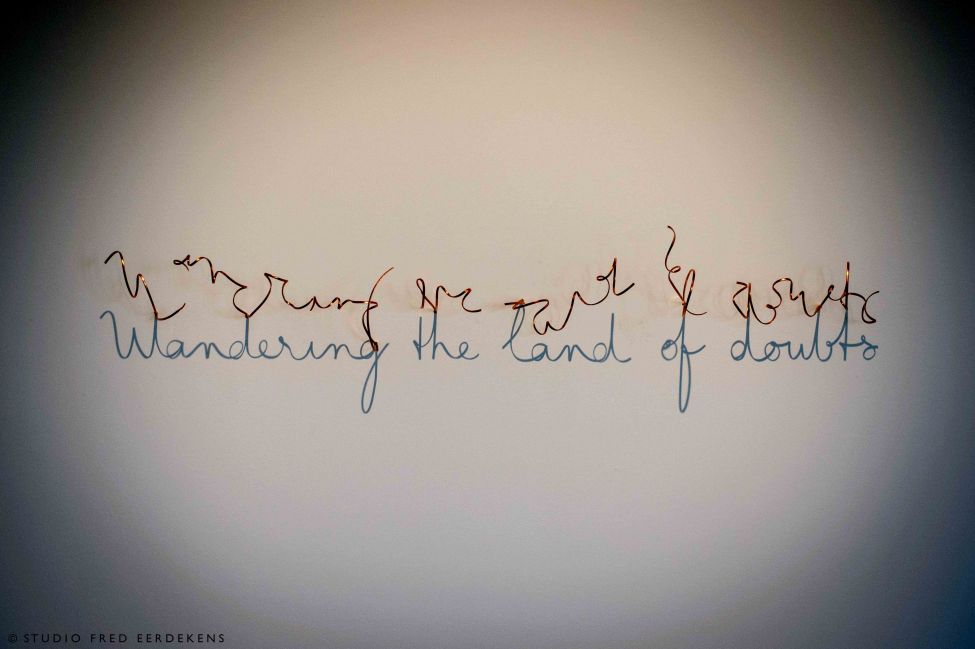 Wandering the land of doubts
© STUDIO FRED EERDEKENS